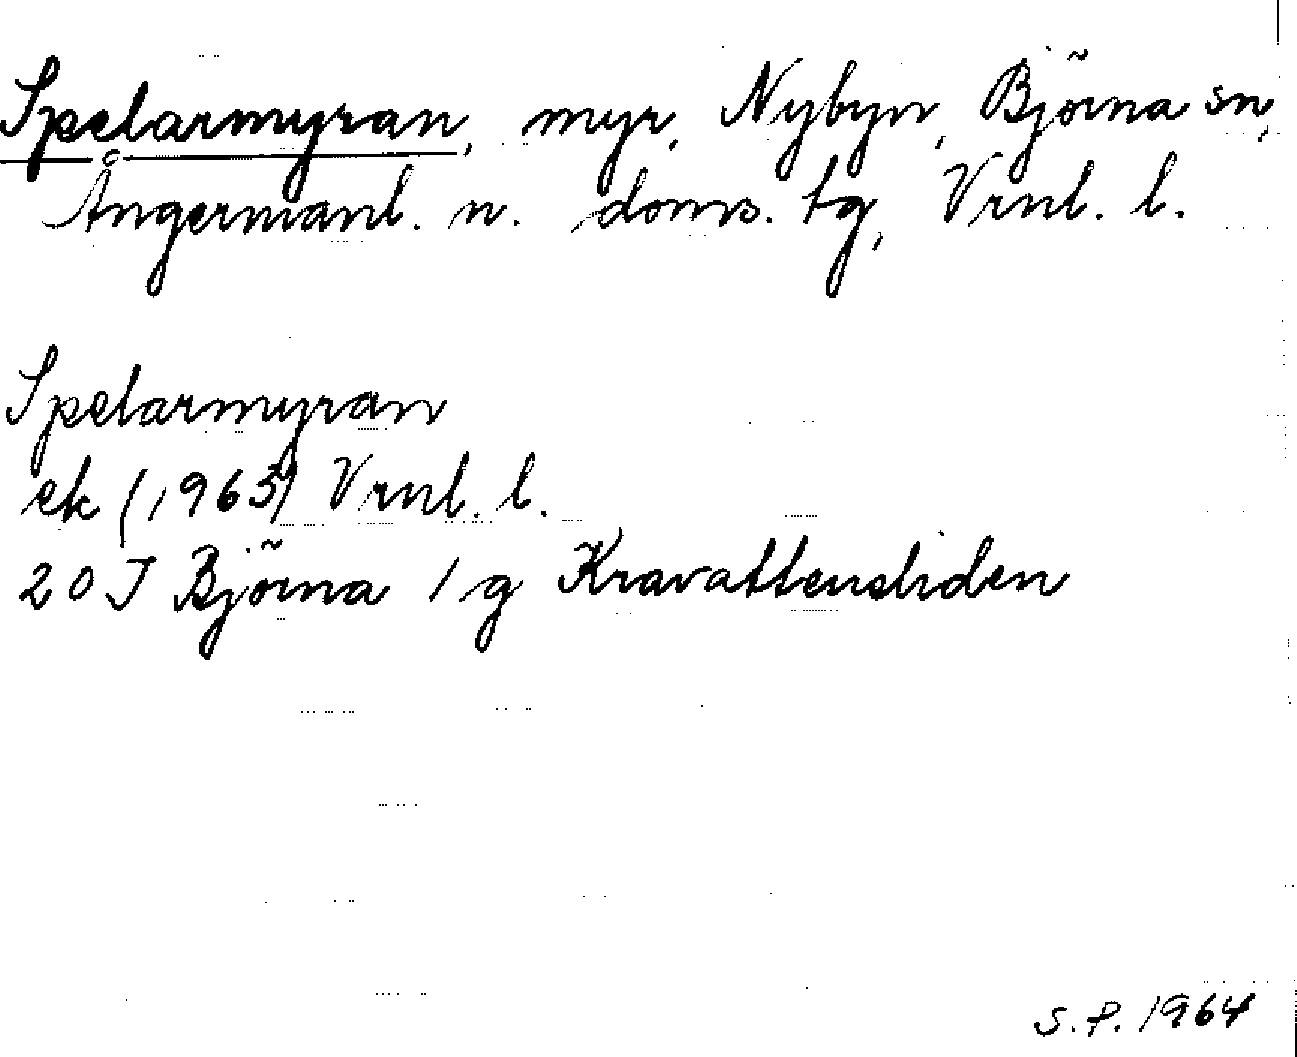 Spelarmyran, myr, Nybyn, Björna sn,
Ångermanl. n. doms. tg, Vrnl. l.
Spelarmyran
ek (1963) Vrnl. l.
20 I Björna 1 g Kravattensliden
S.P. 1964